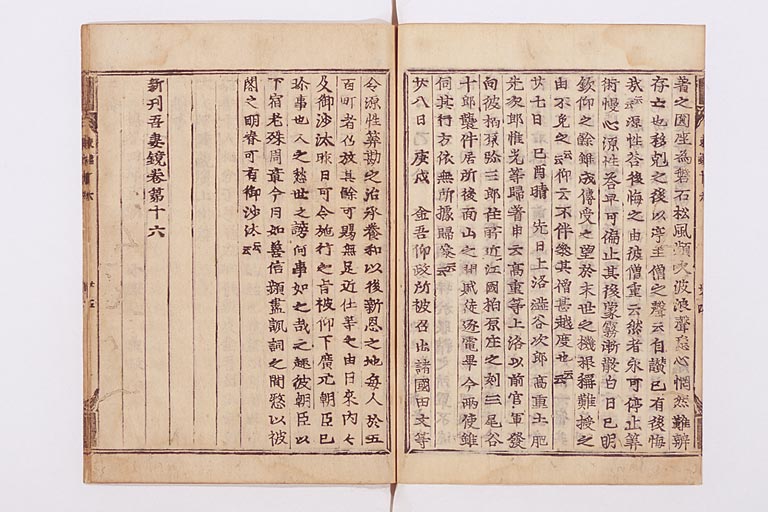 著之圓座為磐石松風頻火波浪聲忘心惘然難辨
存亡也移剋之後以亭主僧之聲云自讃已有後悔
哉云源性答後悔之由彼僧重云然者永可停止算
術慢心源性答早可偏止其後蒙霧漸散白日已明
欽仰之餘雖成傳受之望於末世之機根稱難授之
由不免之云云仰云不伴參其僧甚越度也云云
廿七日 己酉晴 先日上洛澁谷次郎高重土肥
先次郎惟光等歸著申云高重等上洛以前官軍發
向彼柏原弥三郎在所近江國柏原庄之刻三尾谷
十郎襲件居所後面山之間賊徒逐電畢今兩使雖
伺其行方依無所據歸參云云
廿八日 庚戌 金吾仰政所被召出諸國田文等
令源性算勘之治承養和以後新恩之地每人於五
百町者召放其餘可賜無足近仕等之由日來內々
及御沙汰昨日可令施行之旨被仰下廣元朝臣已
珍事也人之愁世之謗何事如之哉之趣彼朝臣以
下宿老殊周章今日如善信頻盡諷詞之間憖以被
閣之明春可有御沙汰云云
新刊吾妻鏡卷第十六